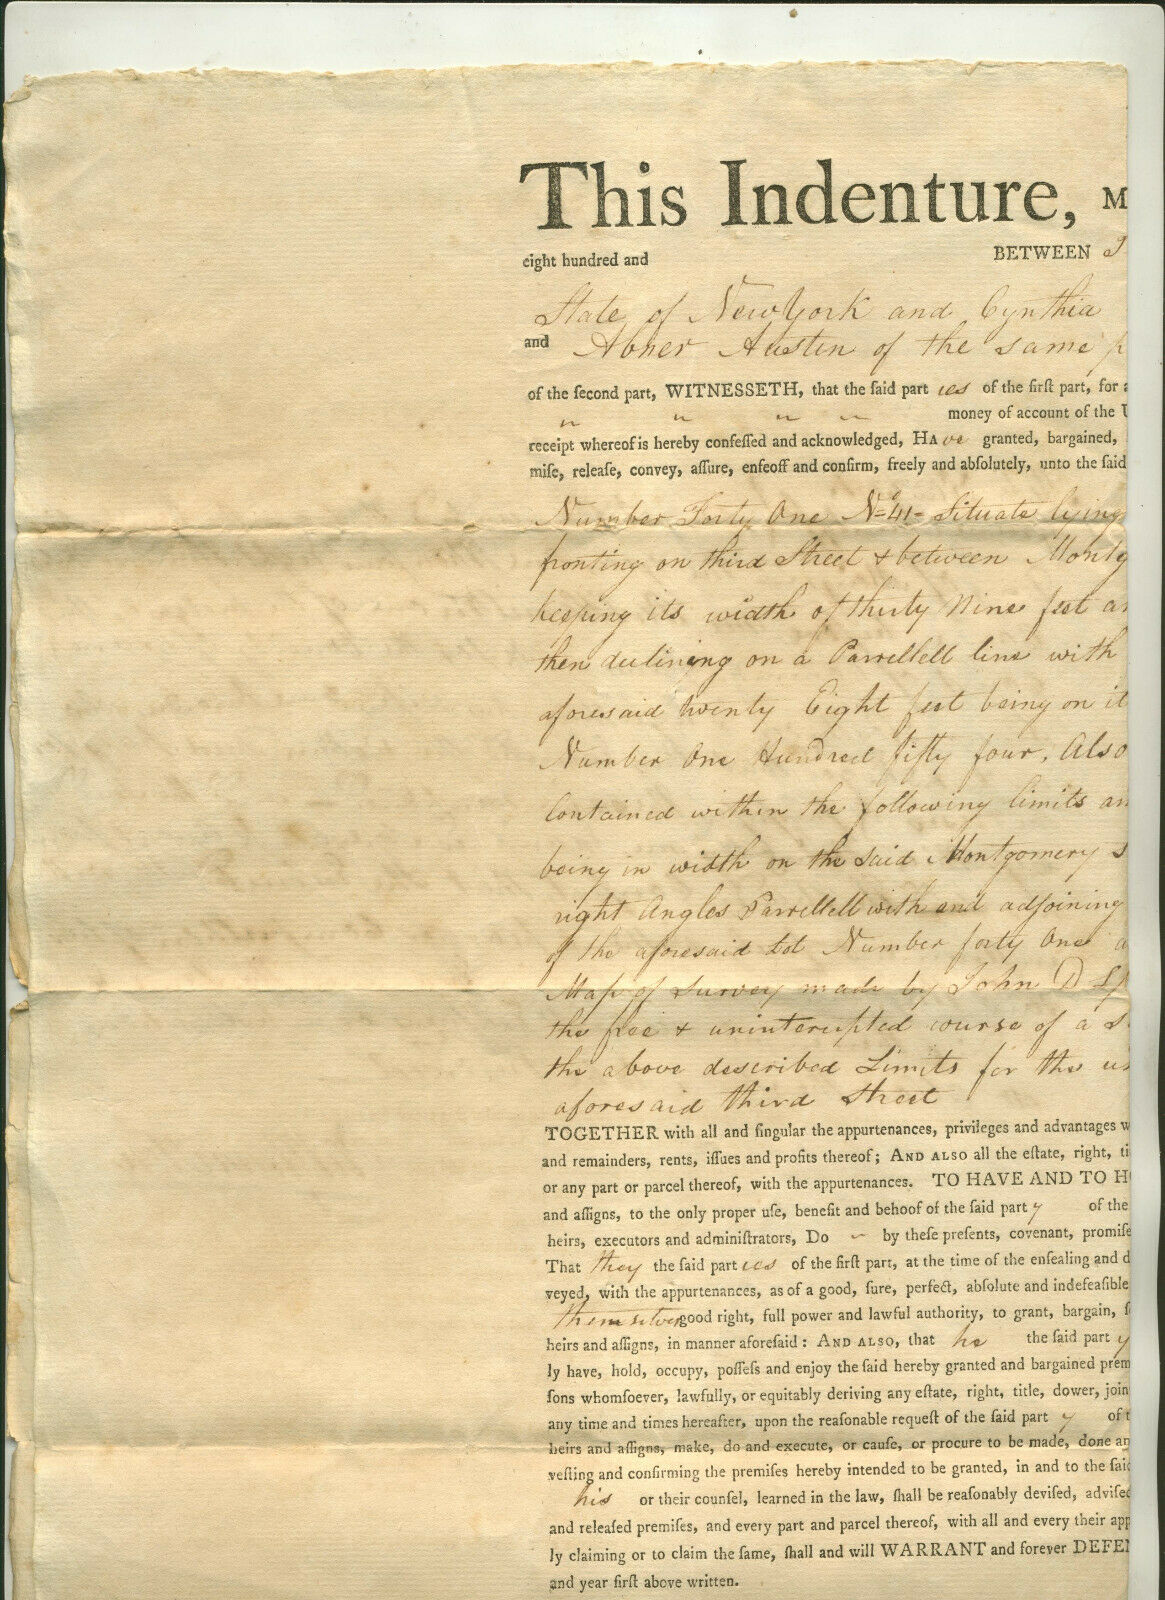 This Indenture, M
eight hundred and BETWEEN
State of New York and Cynthia
and Abner Austin of the same p
of the ſecond part, WITNESSETH, that the ſaid part ies of the firſt part, for a
" " " " money of account of the U
receipt whereof is hereby confeſſed and acknowledged, HAve granted, bargained,
miſe, releaſe, convey, aſſure, enfeoff and confirm, freely and abſolutely, unto the ſaid
Number Forty One No 41 Situate lying
fronting on third Street & between Montg
keeping its width of thirty Nine feet an
then declining on a Parrellell line with
aforesaid twenty Eight feet being on it
Number One Hundred fifty four, Also
Contained within the following limits an
being in width on the said Montgomery s
right Angles Parrellell with and adjoining
of the aforesaid Lot Number forty One a
Map of Survey made by John D Sp
the free & uninterupted course of a s
the above described Limits for the us
aforesaid third Street
TOGETHER with all and ſingular the appurtenances, privileges and advantages w
and remainders, rents, iſſues and profits thereof; AND ALSO all the eſtate, right, ti
or any part or parcel thereof, with the appurtenances. TO HAVE AND TO HO
and aſſigns, to the only proper uſe, benefit and behoof of the ſaid part y of the
heirs, executors and adminiſtrators, Do by theſe preſents, covenant, promiſe
That they the ſaid part ies of the firſt part, at the time of the enſealing and d
veyed, with the appurtenances, as of a good, ſure, perfect, abſolute and indefeaſible
themselves good right, full power and lawful authority, to grant, bargain, ſ
heirs and aſſigns, in manner aforeſaid: AND ALSO, that he the ſaid part y
ly have, hold, occupy, poſſeſs and enjoy the ſaid hereby granted and bargained prem
ſons whomſoever, lawfully, or equitably deriving any eſtate, right, title, dower, join
any time and times hereafter, upon the reaſonable requeſt of the ſaid part y of t
heirs and aſſigns, make, do and execute, or cauſe, or procure to be made, done an
veſting and confirming the premiſes hereby intended to be granted, in and to the ſaid
his or their counſel, learned in the law, ſhall be reaſonably deviſed, adviſed
and releaſed premiſes, and every part and parcel thereof, with all and every their app
ly claiming or to claim the ſame, ſhall and will WARRANT and forever DEFEN
and year firſt above written.